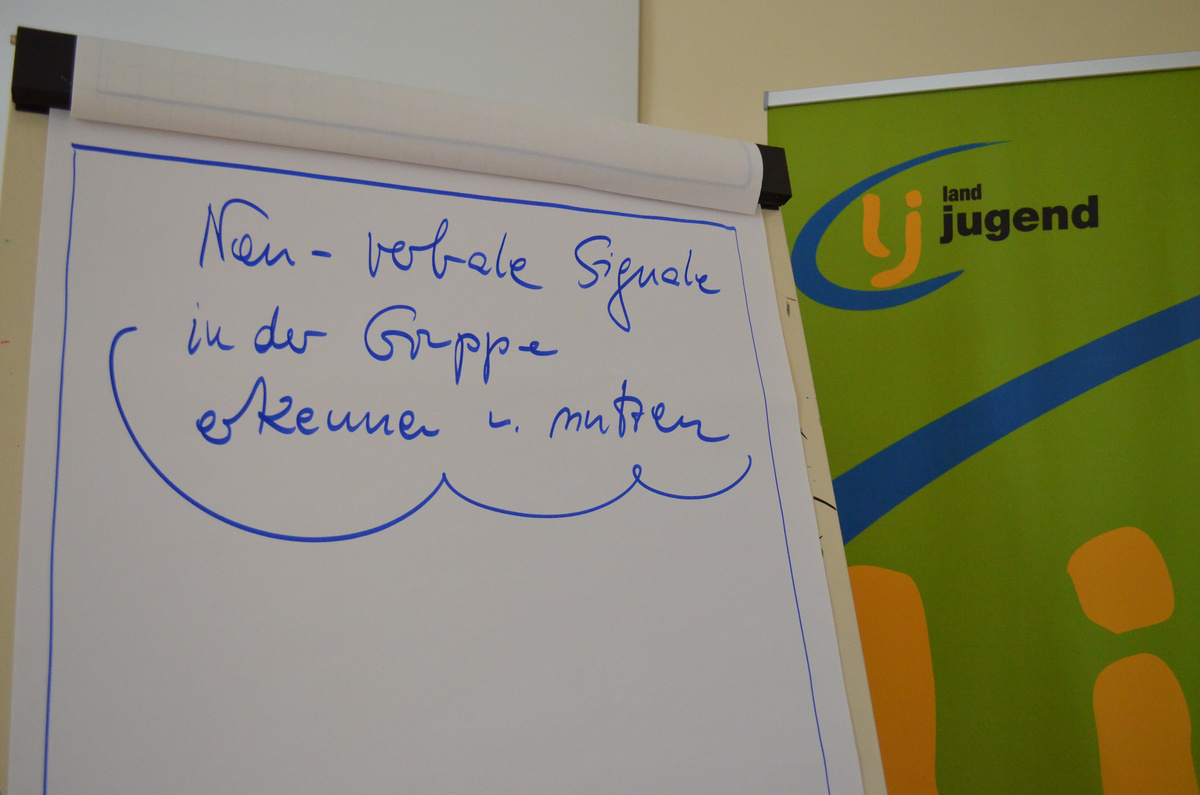 Non-verbale Signale
in der Gruppe
erkennen u. nutzen
lj
land
jugend